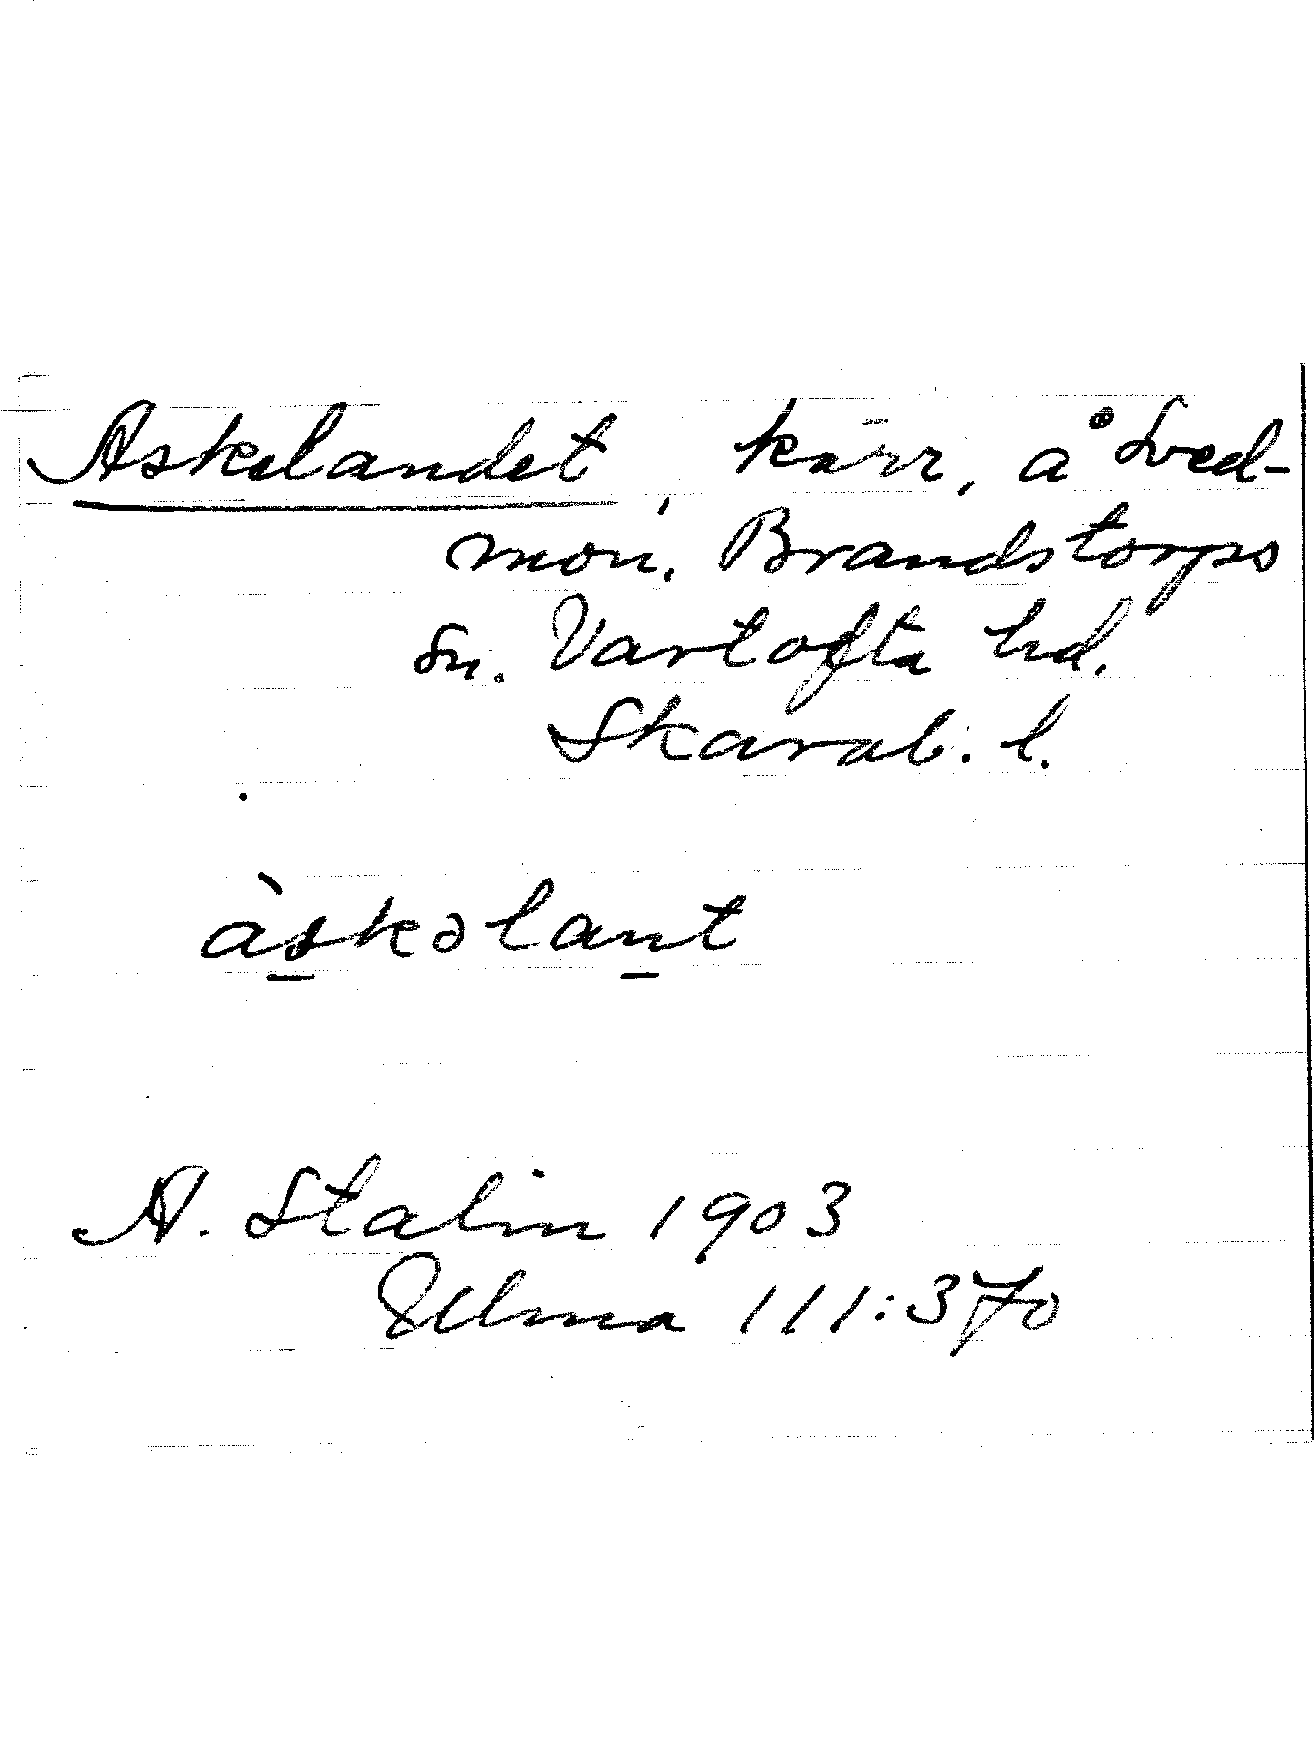 Askelandet, kärr, å Sved-
mon. Brandstorps
sn. Vartofta hd.
Skarab. l.
àskəlant
A. Stalin 1903
Ulma 111:370